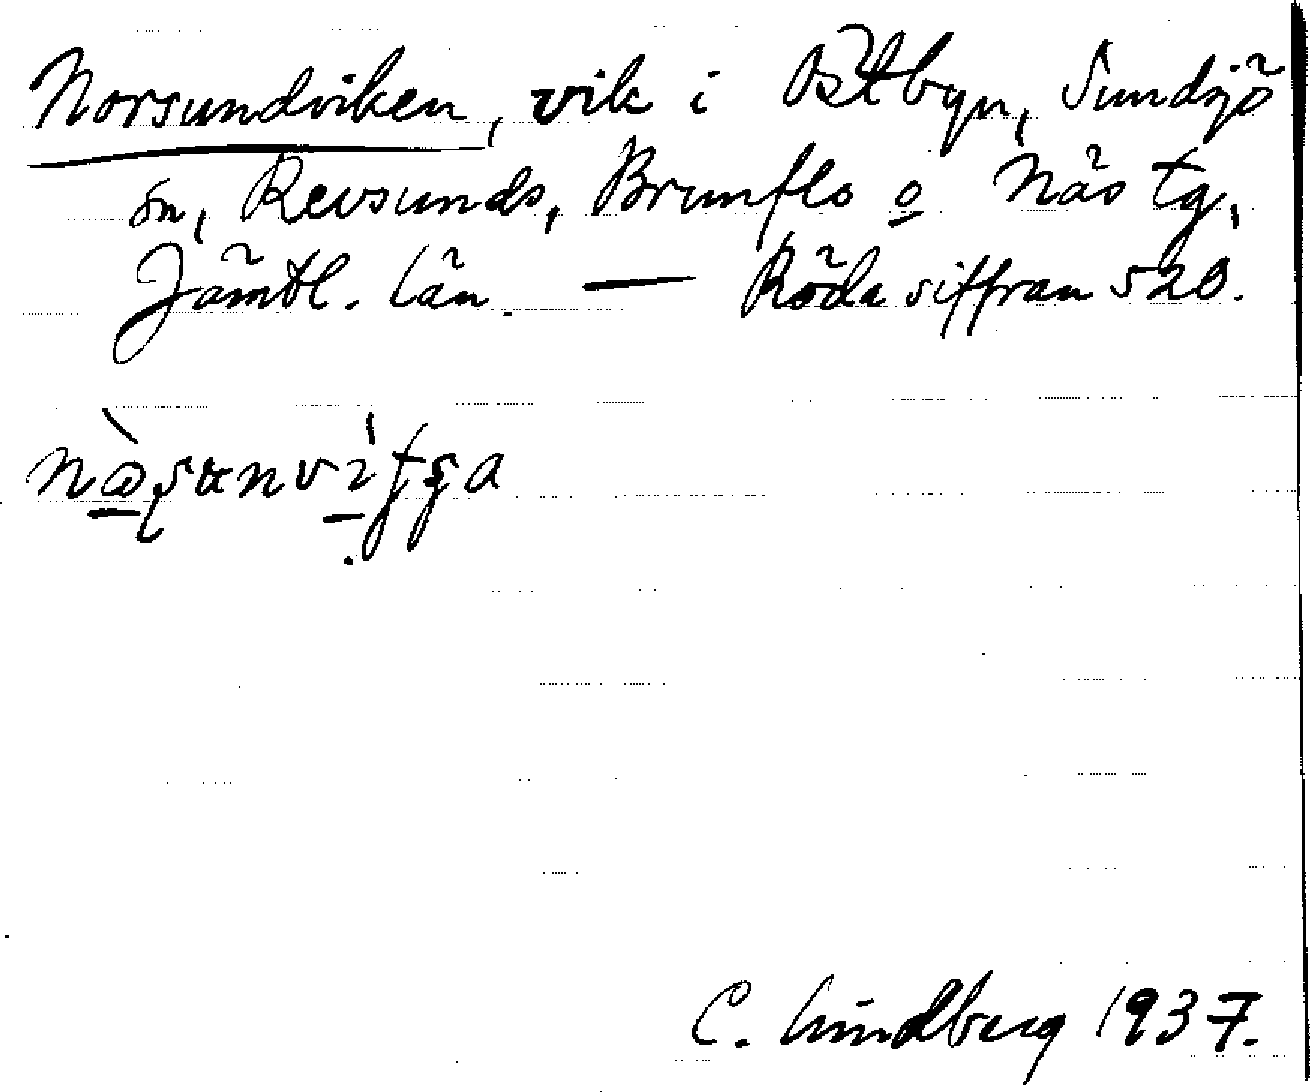 Norsundviken, vik i Östbyn, Sundsjö
sn, Revsunds, Brunflo o Näs tg,
Jämtl. län. — Röda siffran 520.
C. Lindberg 1937.